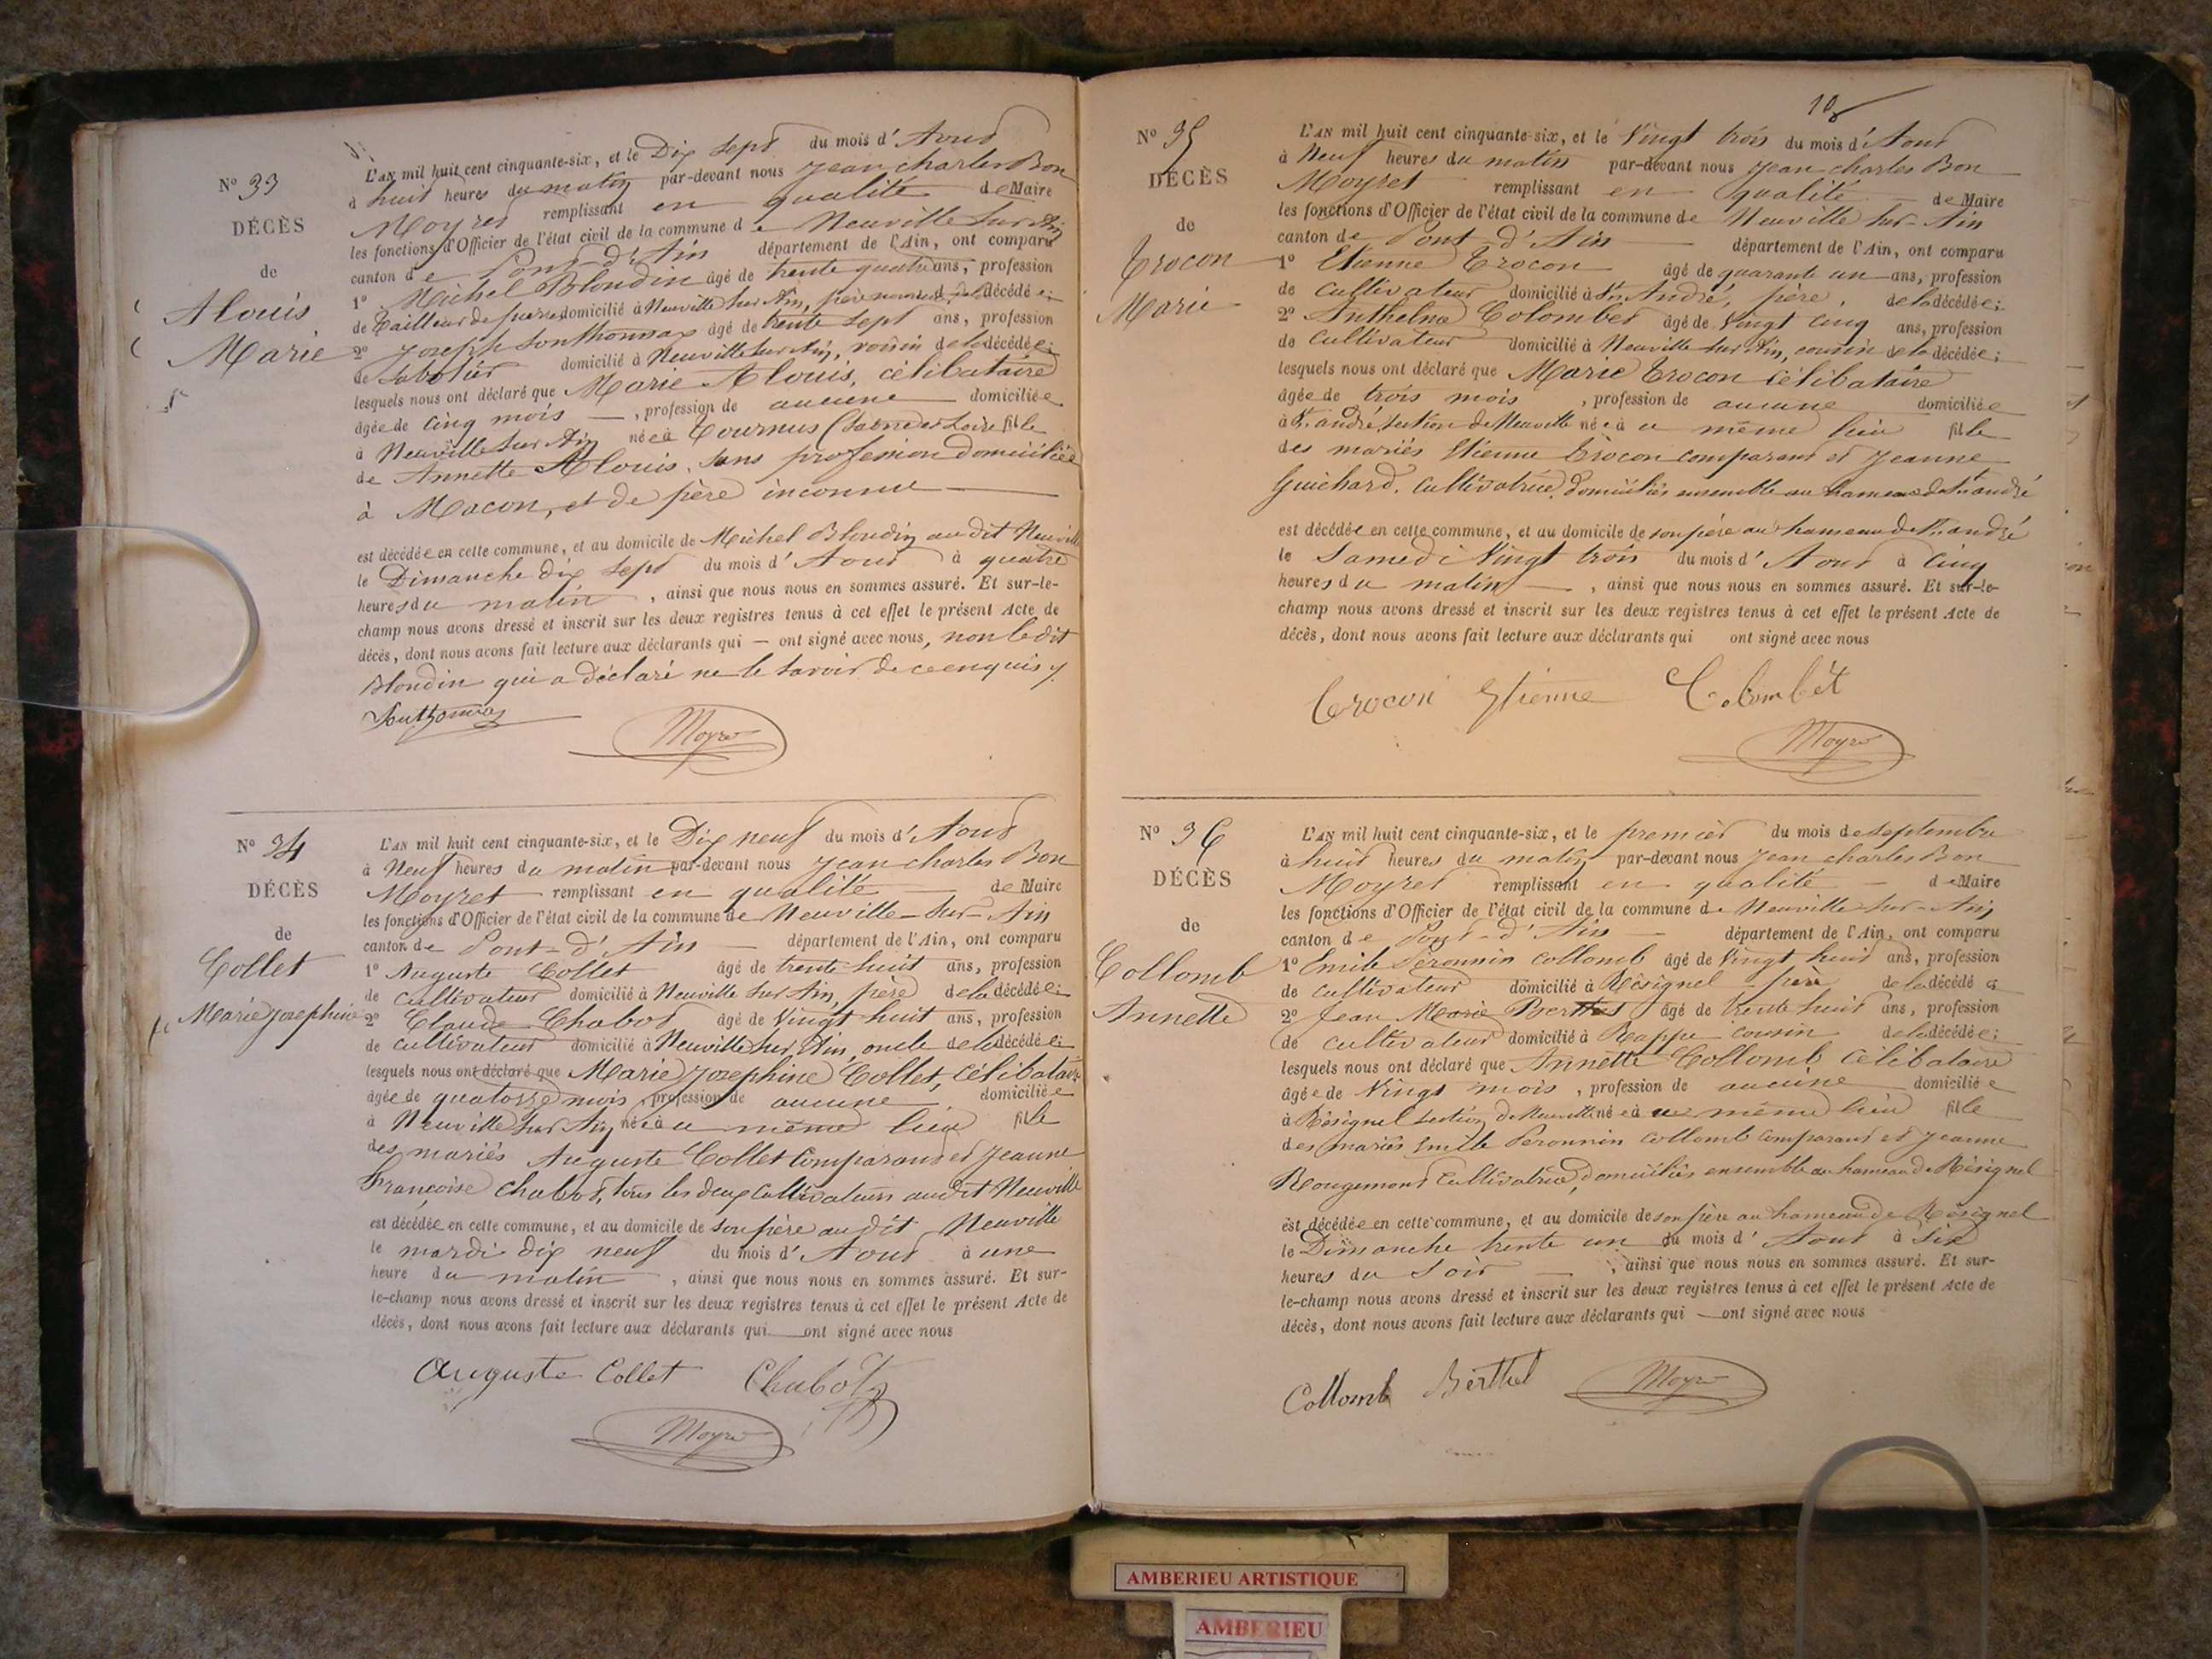 N° 33
DÉCÈS
de
Alouis
Marie
L'AN mil huit cent cinquante-six, et le Dix sept du mois d'Aout
à huit heures du matin par-devant nous Jean charles Bon
Moyret remplissant en qualité de Maire
les fonctions d'Officier de l'état civil de la commune de Neuville sur Ain
canton de Pont-d'Ain département de l'Ain, ont comparu
1° Michel Blondin âgé de trente quatre ans, profession
de tailleur de pierres domicilié à Neuville sur Ain, père nourricier de la décédée;
2° Joseph Southonnax âgé de trente sept ans, profession
de Sabotier domicilié à Neuville sur Ain, voisin de la décédée;
lesquels nous ont déclaré que Marie Alouis, célibataire
âgée de cinq mois, profession de aucune domiciliée
à Neuville sur Ain née à Tournus (Saone et Loire fille
de Annette Alouis, sans profession domiciliée
à Macon, et de père inconnu
est décédée en cette commune, et au domicile de Michel Blondin au dit Neuville
le Dimanche dix sept du mois d'Aout à quatre
heures du matin, ainsi que nous nous en sommes assuré. Et sur-le-
champ nous avons dressé et inscrit sur les deux registres tenus à cet effet le présent Acte de
décès, dont nous avons fait lecture aux déclarants qui — ont signé avec nous, non ledit
Blondin qui a déclaré ne le savoir de ce enquis
Southonnax
Moyret
N° 34
DÉCÈS
de
Collet
Marie Josephine
L'AN mil huit cent cinquante-six, et le Dix neuf du mois d'Aout
à Neuf heures du matin par-devant nous Jean charles Bon
Moyret remplissant en qualité de Maire
les fonctions d'Officier de l'état civil de la commune de Neuville-sur-Ain
canton de Pont-d'Ain département de l'Ain, ont comparu
1° Auguste Collet âgé de trente-huit ans, profession
de cultivateur domicilié à Neuville sur Ain, père de la décédée;
2° Claude Chabot âgé de Vingt huit ans, profession
de cultivateur domicilié à Neuville sur Ain, oncle de la décédée;
lesquels nous ont déclaré que Marie Josephine Collet, célibataire
âgée de quatorze mois, profession de aucune domiciliée
à Neuville sur Ain née à ce même lieu fille
des mariés Auguste Collet comparant et Jeanne
Françoise Chabot, tous les deux cultivateurs audit Neuville
est décédée en cette commune, et au domicile de son père au dit Neuville
le mardi dix neuf du mois d'Aout à une
heure du matin, ainsi que nous nous en sommes assuré. Et sur-
le-champ nous avons dressé et inscrit sur les deux registres tenus à cet effet le présent Acte de
décès, dont nous avons fait lecture aux déclarants qui — ont signé avec nous
Auguste Collet Chabot
Moyret
N° 35
DÉCÈS
de
Trocon
Marie
L'AN mil huit cent cinquante-six, et le Vingt trois du mois d'Aout
à Neuf heures du matin par-devant nous Jean charles Bon
Moyret remplissant en qualité de Maire
les fonctions d'Officier de l'état civil de la commune de Neuville sur-Ain
canton de Pont-d'Ain département de l'Ain, ont comparu
1° Etienne Trocon âgé de quarante un ans, profession
de cultivateur domicilié à St André, père, de la décédée;
2° Anthelme Colombet âgé de Vingt cinq ans, profession
de cultivateur domicilié à Neuville sur Ain, cousin de la décédée;
lesquels nous ont déclaré que Marie Trocon célibataire
âgée de trois mois, profession de aucune domiciliée
à St. andré, section de Neuville née à ce même lieu fille
des mariés Etienne Trocon comparant et Jeanne
Guichard, cultivatrice, domiciliés ensemble au hameau de St. andré
est décédée en cette commune, et au domicile de son père au hameau de St. andré
le Samedi Vingt trois du mois d'Aout à Cinq
heures du matin, ainsi que nous nous en sommes assuré. Et sur-le-
champ nous avons dressé et inscrit sur les deux registres tenus à cet effet le présent Acte de
décès, dont nous avons fait lecture aux déclarants qui ont signé avec nous
Trocon Etienne Colombét
Moyret
N° 36
DÉCÈS
de
Collomb
Annette
L'AN mil huit cent cinquante-six, et le premier du mois de septembre
à huit heures du matin par-devant nous Jean charles Bon
Moyret remplissant en qualité de Maire
les fonctions d'Officier de l'état civil de la commune de Neuville-sur-Ain
canton de Pont-d'Ain département de l'Ain, ont comparu
1° Emile Peronnin Collomb âgé de Vingt huit ans, profession
de cultivateur domicilié à Résignel père de la décédé
2° Jean Marie Berthet âgé de trente huit ans, profession
de cultivateur domicilié à Rappe cousin de la décédée;
lesquels nous ont déclaré que Annette Collomb célibataire
âgée de Vingt mois, profession de aucune domiciliée
à Résignel section de Neuville née à ce même lieu fille
des mariés Emile Peronnin Collomb comparant et Jeanne
Rougemont cultivatrice, domiciliés ensemble au hameau de Résignel
est décédée en cette commune, et au domicile de son père au hameau de Résignel
le Dimanche trente un du mois d'Aout à Six
heures du Soir, ainsi que nous nous en sommes assuré. Et sur-
le-champ nous avons dressé et inscrit sur les deux registres tenus à cet effet le présent Acte de
décès, dont nous avons fait lecture aux déclarants qui — ont signé avec nous
Collomb Berthet Moyret
AMBERIEU ARTISTIQUE
AMBERIEU